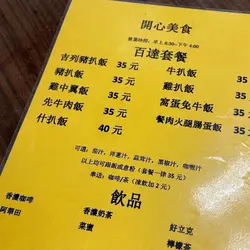 開心美食
營業時間：早上 8:30-下午 4:00
百達套餐
吉列豬扒飯 35 元 牛扒飯 35
豬扒飯 35 元 雞扒飯 35
雞中翼飯 35 元 窩蛋免牛飯 35
先牛肉飯 35 元 餐肉火腿腸蛋飯
什扒飯 40 元
可選：茄汁，洋蔥汁，蒜茸汁，黑椒汁，咖喱汁
以上均可跟飯或意粉（套餐一律 35 元）
串送：咖啡/茶（凍飲加 2 元）
飲品
香濃咖啡 香濃奶茶 好立克
阿華田 菜蜜 檸檬茶